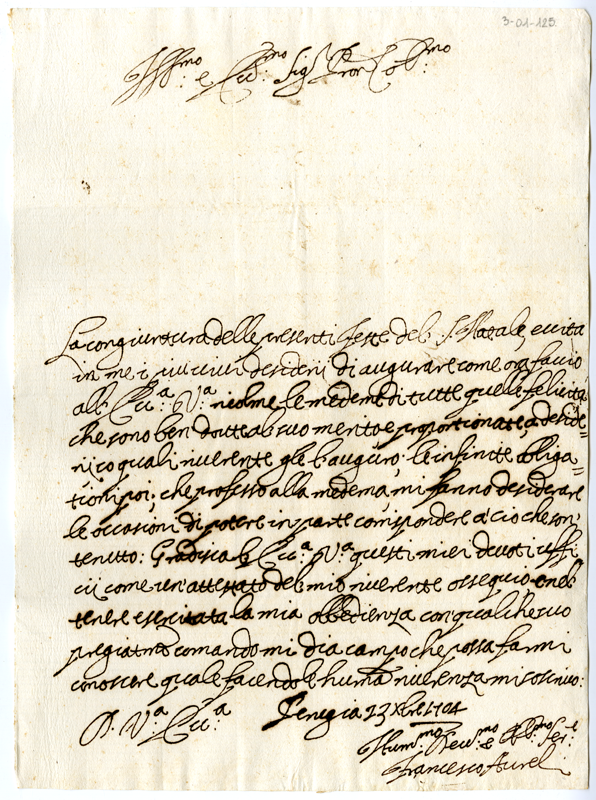 3-01-125.
Ill.mo e Ecc.mo Sig.r Pron Col.mo
La congiuntura delle presenti feste del S. Natale, eccita
in me i più vivi desiderii di augurare come ora faccio
all' Ecc.a V.a ricolme le medeme di tutte quelle felicità
che sono ben dovute al suo merito e proportionate, a deside=
rii co quali riverente gle l'auguro; le infinite obliga=
tioni poi, che professo alla medema, mi fanno desiderare
le occasioni di potere in parte corrispondere a ciò che son
tenuto: Gradisca l' Ecc.a V.a questi miei devoti uffi
cii come un'attestato del mio riverente ossequio, e nel
tenere esercitata la mia obbedienza con qualche suo
pregiat.mo comando mi dia campo che possa farmi
conoscere quale facendole hum.a riverenza mi soscrivo:
D. V.a Ecc.a Venezia 23 Xbre 1704
Hum.mo Dev.mo e Obl.mo Ser.e
Francesco Aureli